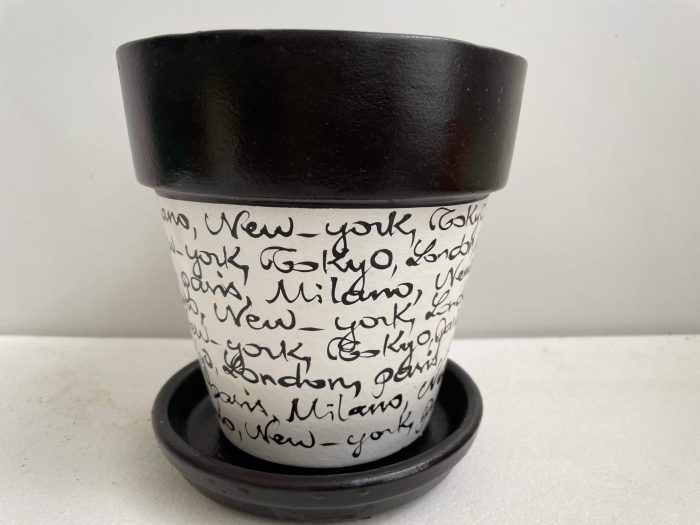 ano, New-york, Tokyo
w-york, Tokyo, London
paris, Milano, New
o, New-york, Lon
ew-york, Tokyo, par
o, London, paris
paris, Milano, N
o, New-york, p